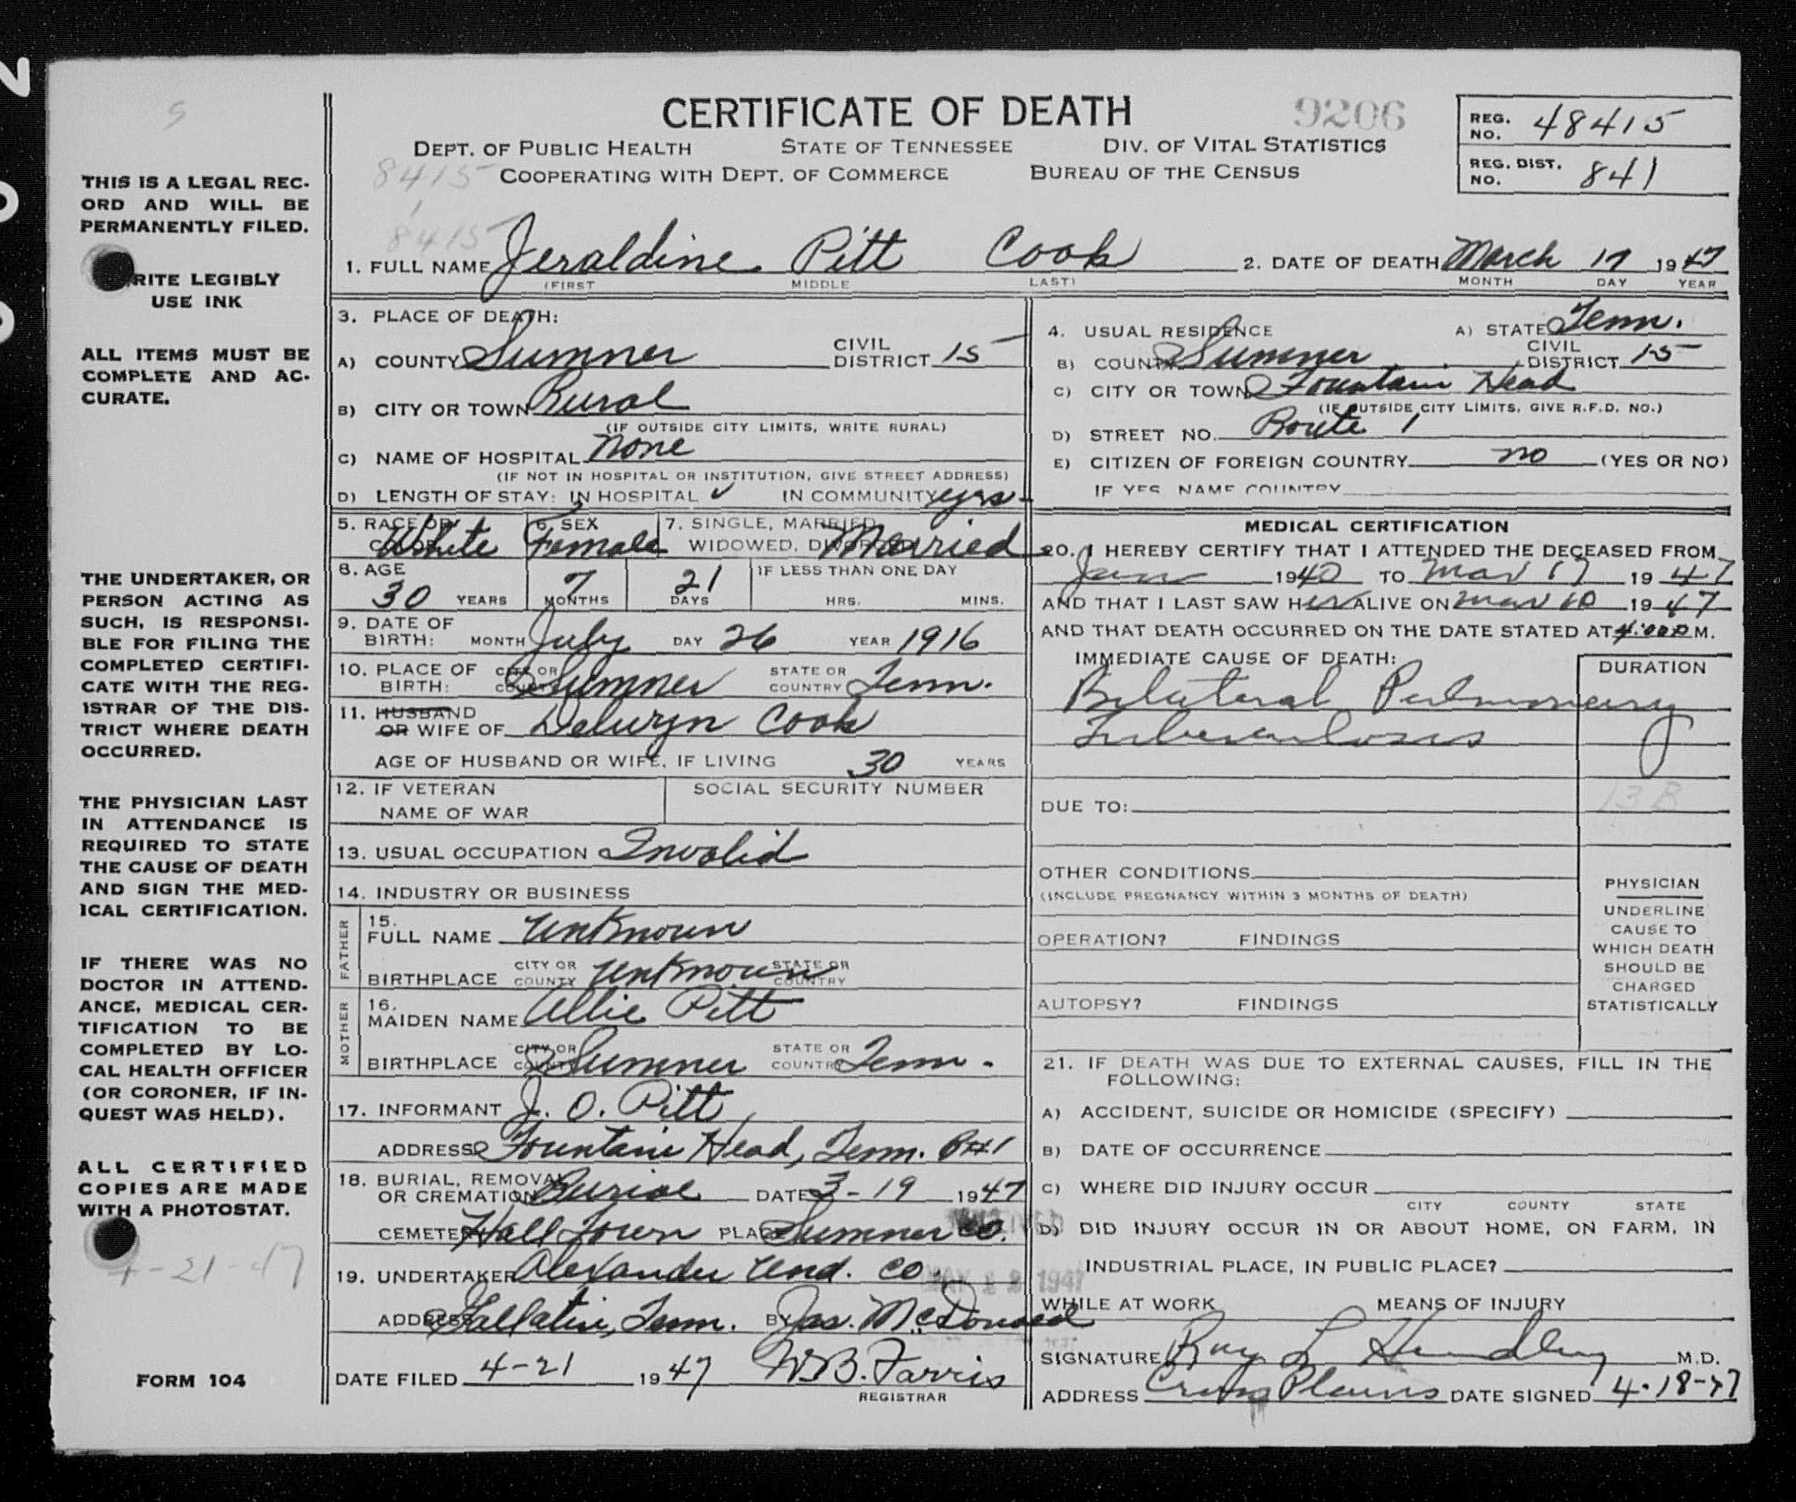 CERTIFICATE OF DEATH
9206
REG. NO. 48415
DEPT. OF PUBLIC HEALTH STATE OF TENNESSEE DIV. OF VITAL STATISTICS
8415 COOPERATING WITH DEPT. OF COMMERCE BUREAU OF THE CENSUS
REG. DIST. NO. 841
8415
1. FULL NAME Jeraldine Pitt Cook 2. DATE OF DEATH March 17 1947
(FIRST MIDDLE LAST) MONTH DAY YEAR
THIS IS A LEGAL REC-
ORD AND WILL BE
PERMANENTLY FILED.
RITE LEGIBLY
USE INK
ALL ITEMS MUST BE
COMPLETE AND AC-
CURATE.
THE UNDERTAKER, OR
PERSON ACTING AS
SUCH, IS RESPONSI-
BLE FOR FILING THE
COMPLETED CERTIFI-
CATE WITH THE REG-
ISTRAR OF THE DIS-
TRICT WHERE DEATH
OCCURRED.
THE PHYSICIAN LAST
IN ATTENDANCE IS
REQUIRED TO STATE
THE CAUSE OF DEATH
AND SIGN THE MED-
ICAL CERTIFICATION.
IF THERE WAS NO
DOCTOR IN ATTEND-
ANCE, MEDICAL CER-
TIFICATION TO BE
COMPLETED BY LO-
CAL HEALTH OFFICER
(OR CORONER, IF IN-
QUEST WAS HELD).
ALL CERTIFIED
COPIES ARE MADE
WITH A PHOTOSTAT.
4-21-47
FORM 104
3. PLACE OF DEATH:
A) COUNTY Sumner CIVIL DISTRICT 15
B) CITY OR TOWN Rural
(IF OUTSIDE CITY LIMITS, WRITE RURAL)
C) NAME OF HOSPITAL None
(IF NOT IN HOSPITAL OR INSTITUTION, GIVE STREET ADDRESS)
D) LENGTH OF STAY: IN HOSPITAL ✓ IN COMMUNITY yrs
5. RACE OR White 6. SEX Female 7. SINGLE, MARRIED, WIDOWED, Married
8. AGE 30 YEARS 7 MONTHS 21 DAYS IF LESS THAN ONE DAY HRS. MINS.
9. DATE OF BIRTH: MONTH July DAY 26 YEAR 1916
10. PLACE OF BIRTH: CITY OR COUNTY Sumner STATE OR COUNTRY Tenn.
11. HUSBAND OR WIFE OF Delwyn Cook
AGE OF HUSBAND OR WIFE, IF LIVING 30 YEARS
12. IF VETERAN NAME OF WAR SOCIAL SECURITY NUMBER
13. USUAL OCCUPATION Invalid
14. INDUSTRY OR BUSINESS
FATHER
15. FULL NAME Unknown
BIRTHPLACE CITY OR COUNTY Unknown STATE OR COUNTRY
MOTHER
16. MAIDEN NAME Allie Pitt
BIRTHPLACE CITY OR COUNTY Sumner STATE OR COUNTRY Tenn.
17. INFORMANT J. O. Pitt
ADDRESS Fountain Head, Tenn. R#1
18. BURIAL, REMOVAL OR CREMATION Burial DATE 3-19 1947
CEMETE Hall Town PLA Sumner Co.
19. UNDERTAKER Alexander Und. Co.
ADDRESS Gallatin, Tenn. BY Jas. McDonald
DATE FILED 4-21 1947 W.B. Farris
REGISTRAR
4. USUAL RESIDENCE A) STATE Tenn.
B) COUNTY Sumner CIVIL DISTRICT 15
C) CITY OR TOWN Fountain Head
(IF OUTSIDE CITY LIMITS, GIVE R.F.D. NO.)
D) STREET NO. Route 1
E) CITIZEN OF FOREIGN COUNTRY no (YES OR NO)
IF YES, NAME COUNTRY
MEDICAL CERTIFICATION
20. I HEREBY CERTIFY THAT I ATTENDED THE DECEASED FROM
Jan 1940 TO Mar 17 1947
AND THAT I LAST SAW HER ALIVE ON Mar 10 1947
AND THAT DEATH OCCURRED ON THE DATE STATED AT 4:00 P M.
IMMEDIATE CAUSE OF DEATH: DURATION
Bilateral Pulmonary
Tuberculosis
13B
DUE TO:
OTHER CONDITIONS
(INCLUDE PREGNANCY WITHIN 3 MONTHS OF DEATH)
OPERATION? FINDINGS
AUTOPSY? FINDINGS
PHYSICIAN
UNDERLINE
CAUSE TO
WHICH DEATH
SHOULD BE
CHARGED
STATISTICALLY
21. IF DEATH WAS DUE TO EXTERNAL CAUSES, FILL IN THE
FOLLOWING:
A) ACCIDENT, SUICIDE OR HOMICIDE (SPECIFY)
B) DATE OF OCCURRENCE
C) WHERE DID INJURY OCCUR
CITY COUNTY STATE
D) DID INJURY OCCUR IN OR ABOUT HOME, ON FARM, IN
INDUSTRIAL PLACE, IN PUBLIC PLACE?
1947
WHILE AT WORK MEANS OF INJURY
SIGNATURE Roy L Hendley M.D.
ADDRESS Cross Plains DATE SIGNED 4-18-47